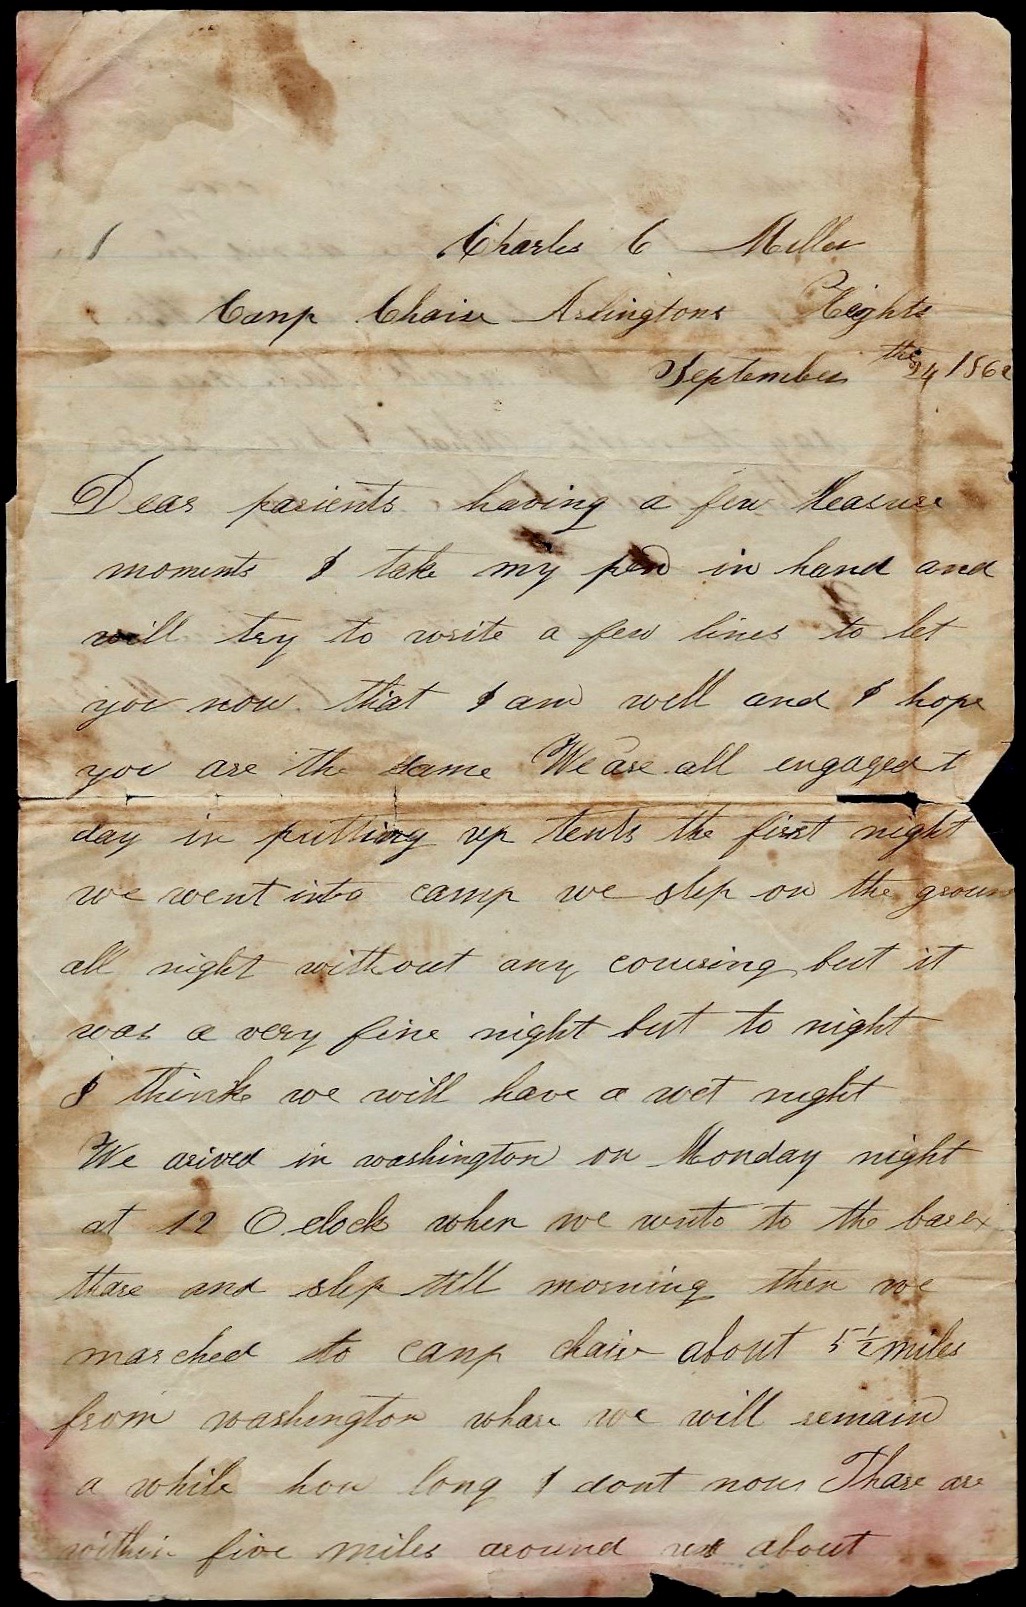 1 Charles C Miller
Camp Chaise Arlingtons Heights
September the 24 186
Dear parients having a few leasure
moments I take my pen in hand and
will try to write a few lines to let
you now that I am well and I hope
you are the same We are all engaged t
day in putting up tents the first night
we went into camp we slep on the groun
all night without any covering but it
was a very fine night but to night
I think we will have a wet night
We arived in washington on Monday night
at 12 O clock when we wento to the barex
thare and slep till morning then we
marched to camp chaise about 5 1/2 miles
from washington whare we will remain
a while how long I dont now Thare are
within five miles around us about